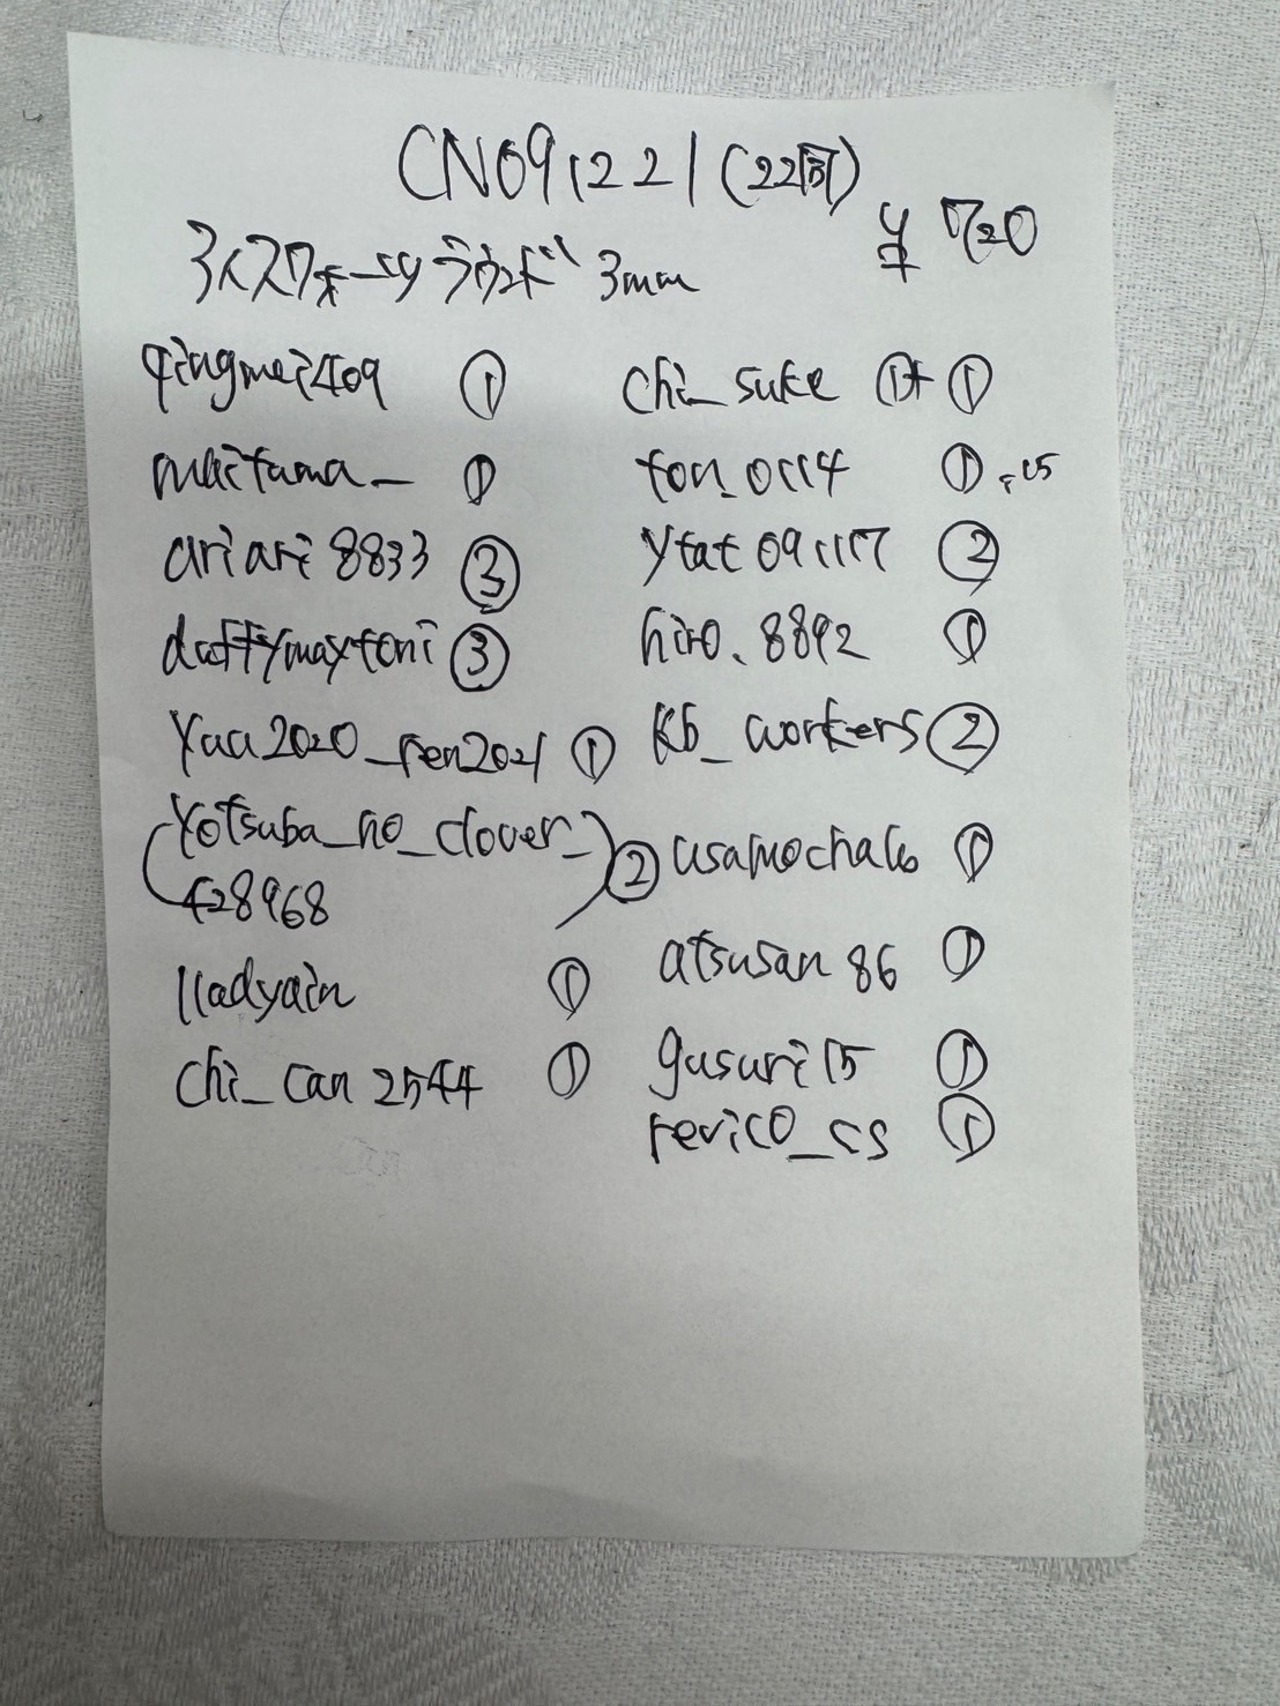 CN091221(22商)
¥720
ミルスクォーツラウンド 3mm
qingmei409 ①
maitama_ ①
ariari8833 ③
duffymaytoni ③
yuu2020_ren2021 ①
(yotsuba_no_clover_
428968) ②
lladyain ①
chi_can2544 ①
chi_suke ①+①
ton.0114 ①
ytat091117 ②
hiro.8892 ①
kb_workers ②
usamochako ①
atsusan86 ①
gusuri15 ①
revico_cs ①